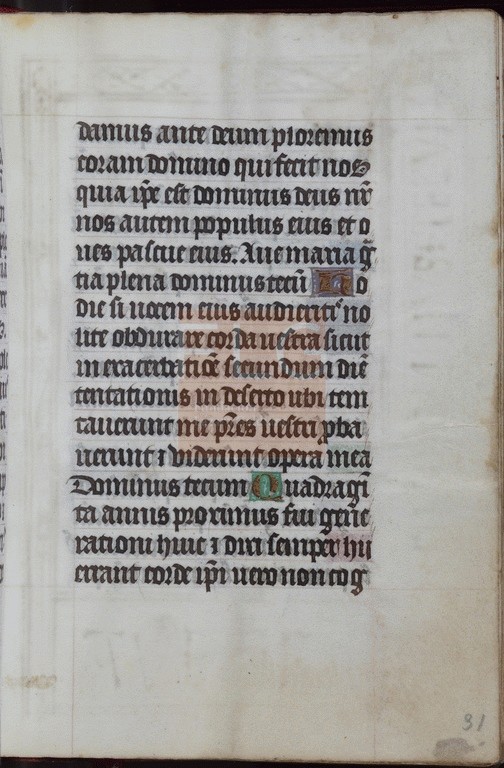 damus ante deum ploremus
coram domino qui fecit nos
quia ip̄e est dominus deus nr̄
nos autem populus eius et o
ues pascue eius. Aue maria g̃
tia plena dominus tecū Ho
die si uocem eius audieritis no
lite obdurare corda uestra sicut
in exacerbatiōe secundum diē
temtationis in deserto ubi tem
tauerunt me p̄res uestri ꝓba
uerunt ⁊ viderunt opera mea
Dominus tecum Quadragī
ta annis proximus fui gen̄e
rationi huic ⁊ dixi semper hii
errant corde ip̄i uero non cog̃
31